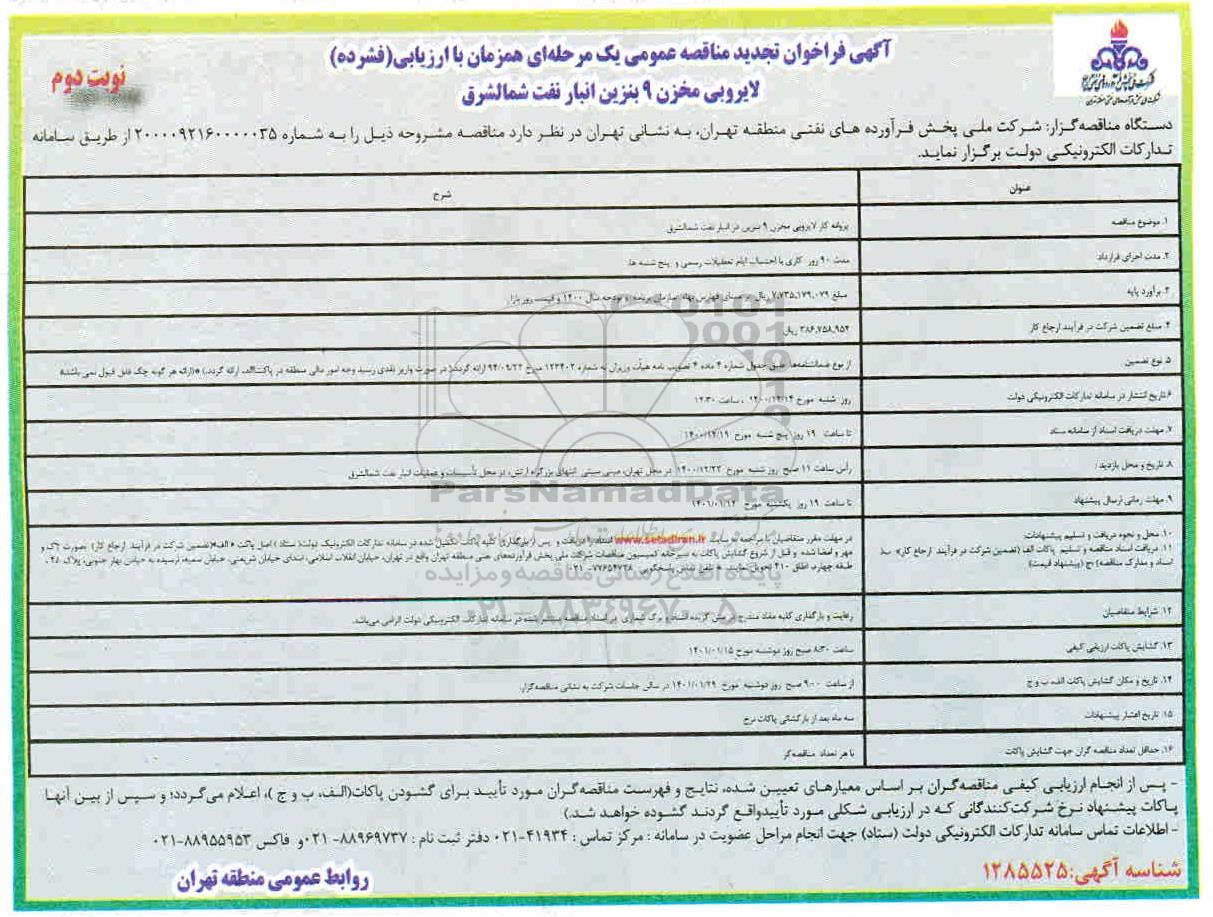 آگهی فراخوان تجدید مناقصه عمومی یک مرحله‌ای همزمان با ارزیابی(فشرده)
لایروبی مخزن ۹ بنزین انبار نفت شمالشرق
نوبت دوم
دستگاه مناقصه‌گزار: شرکت ملی پخش فرآورده های نفتی منطقه تهران، به نشانی تهران در نظر دارد مناقصه مشروحه ذیل را به شماره ۲۰۰۰۰۹۲۱۶۰۰۰۰۰۳۵ از طریق سامانه
تدارکات الکترونیکی دولت برگزار نماید.
عنوان شرح
۱. موضوع مناقصه پروانه کار لایروبی مخزن ۹ بنزین در انبار نفت شمالشرق
۲. مدت اجرای قرارداد مدت ۹۰ روز کاری با احتساب ایام تعطیلات رسمی و پنج شنبه ها.
۳. برآورد پایه مبلغ ۷،۷۳۵،۱۷۹،۰۷۹ ریال بر مبنای فهارس بهاء سازمان برنامه و بودجه سال ۱۴۰۰ و قیمت روز بازار
۴. مبلغ تضمین شرکت در فرآیند ارجاع کار ۳۸۶،۷۵۸،۹۵۴ ریال
۵. نوع تضمین از نوع ضمانتنامه‌ها طبق جدول شماره ۴ ماده ۴ تصویب نامه هیأت وزیران به شماره ۱۲۳۴۰۲ مورخ ۹۴/۰۹/۲۲ ارائه گردد.( در صورت واریز نقدی رسید وجه امور مالی منطقه در پاکت‌الف ارائه گردد.) *(ارائه هر گونه چک قابل قبول نمی باشد)
۶.تاریخ انتشار در سامانه تدارکات الکترونیکی دولت روز شنبه مورخ ۱۴۰۰/۱۲/۱۴ ، ساعت ۱۲:۳۰
۷. مهلت دریافت اسناد از سامانه ستاد تا ساعت ۱۹ روز پنج شنبه مورخ ۱۴۰۰/۱۲/۱۹
۸. تاریخ و محل بازدید : رأس ساعت ۱۱ صبح روز شنبه مورخ ۱۴۰۰/۱۲/۲۲ در محل تهران، مینی سیتی انتهای بزرگراه ارتش، در محل تأسیسات و عملیات انبار نفت شمالشرق
۹. مهلت زمانی ارسال پیشنهاد تا ساعت ۱۹ روز یکشنبه مورخ ۱۴۰۱/۰۱/۱۴
۱۰. محل و نحوه دریافت و تسلیم پیشنهادات:
۱۱. دریافت اسناد مناقصه و تسلیم پاکات الف (تضمین شرکت در فرآیند ارجاع کار)،
اسناد و مدارک مناقصه) ج (پیشنهاد قیمت)
در مهلت مقرر متقاضیان با مراجعه به سایت www.setadiran.ir اسناد را دریافت و پس از بارگذاری کلیه پاکات تکمیل شده در سامانه تدارکات الکترونیک دولت( ستاد ) اصل پاکت « الف»(تضمین شرکت در فرآیند ارجاع کار) بصورت لاک و
مهر و امضا شده و قبل از شروع گشایش پاکات به دبیرخانه کمیسیون مناقصات شرکت ملی پخش فرآورده‌های نفتی منطقه تهران واقع در تهران، خیابان انقلاب اسلامی، ابتدای خیابان شریعتی، خیابان سمیه، نرسیده به خیابان بهار جنوبی، پلاک ۴۸،
طبقه چهارم، اطاق ۴۱۰ تحویل نمایند. * تلفن تماس پاسخگویی ۷۷۶۵۴۷۳۸-۰۲۱
۱۲. شرایط متقاضیان رعایت و بارگذاری کلیه مفاد مندرج در اسناد مناقصه منتشر شده در سامانه تدارکات الکترونیکی دولت الزامی می‌باشد.
۱۳. گشایش پاکات ارزیابی کیفی ساعت ۸:۳۰ صبح روز دوشنبه مورخ ۱۴۰۱/۰۱/۱۵
۱۴. تاریخ و مکان گشایش پاکات الف، ب و ج از ساعت ۹:۰۰ صبح روز دوشنبه مورخ ۱۴۰۱/۰۱/۲۹ در سالن جلسات شرکت به نشانی مناقصه‌گزار.
۱۵. تاریخ اعتبار پیشنهادات سه ماه بعد از بازگشائی پاکات نرخ
۱۶. حداقل تعداد مناقصه گران جهت گشایش پاکات با هر تعداد مناقصه‌گر
ParsNamadData
پایگاه اطلاع رسانی مناقصه و مزایده
۰۲۱-۸۸۳۴۹۶۷۰-۵
- پس از انجام ارزیابی کیفی مناقصه‌گران بر اساس معیارهای تعیین شده، نتایج و فهرست مناقصه‌گران مورد تأیید برای گشودن پاکات(الف، ب و ج )، اعلام می‌گردد؛ و سپس از بین آنها
پاکات پیشنهاد نرخ شرکت‌کنندگانی که در ارزیابی شکلی مورد تأییدواقع گردند گشوده خواهد شد.)
- اطلاعات تماس سامانه تدارکات الکترونیکی دولت (ستاد) جهت انجام مراحل عضویت در سامانه : مرکز تماس : ۴۱۹۳۴-۰۲۱ دفتر ثبت نام : ۸۸۹۶۹۷۳۷-۰۲۱ و فاکس ۸۸۹۵۵۹۵۳-۰۲۱
شناسه آگهی:۱۲۸۵۵۲۵
روابط عمومی منطقه تهران